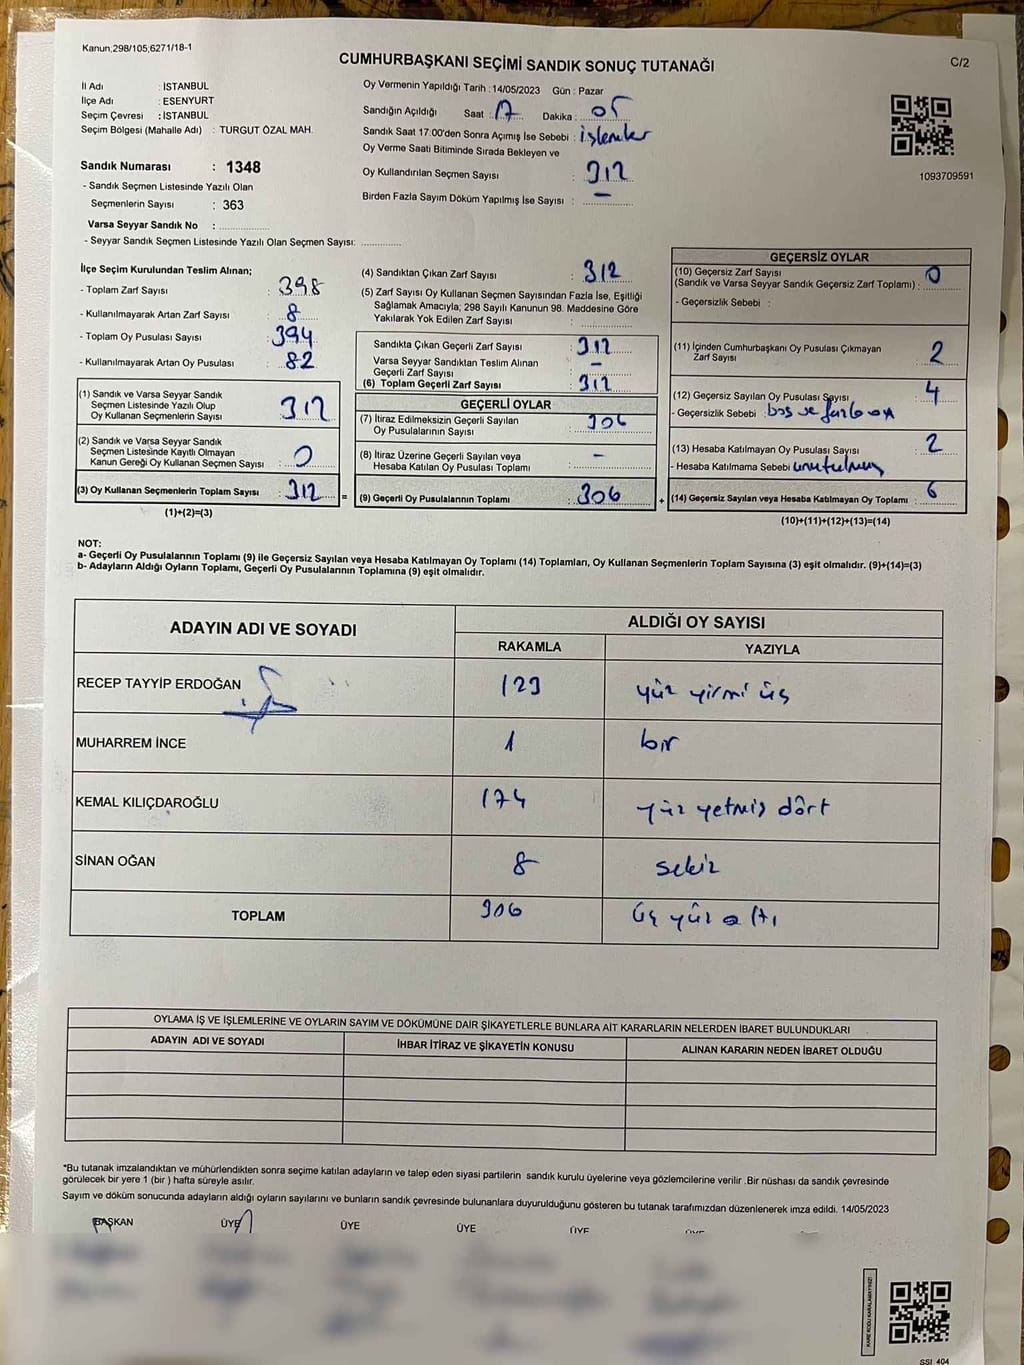 Kanun,298/105,6271/18-1
CUMHURBAŞKANI SEÇİMİ SANDIK SONUÇ TUTANAĞI
C/2
İl Adı : İSTANBUL
İlçe Adı : ESENYURT
Seçim Çevresi : İSTANBUL
Seçim Bölgesi (Mahalle Adı) : TURGUT ÖZAL MAH.
Sandık Numarası : 1348
- Sandık Seçmen Listesinde Yazılı Olan
Seçmenlerin Sayısı : 363
Varsa Seyyar Sandık No :
- Seyyar Sandık Seçmen Listesinde Yazılı Olan Seçmen Sayısı:
Oy Vermenin Yapıldığı Tarih :14/05/2023 Gün : Pazar
Sandığın Açıldığı Saat : 17 Dakika : 05
Sandık Saat 17:00'den Sonra Açımış İse Sebebi : işlemler
Oy Verme Saati Bitiminde Sırada Bekleyen ve
Oy Kullandırılan Seçmen Sayısı : 312
Birden Fazla Sayım Döküm Yapılmış İse Sayısı : —
1093709591
İlçe Seçim Kurulundan Teslim Alınan;
- Toplam Zarf Sayısı : 398
- Kullanılmayarak Artan Zarf Sayısı : 8
- Toplam Oy Pusulası Sayısı : 394
- Kullanılmayarak Artan Oy Pusulası : 82
(1) Sandık ve Varsa Seyyar Sandık
Seçmen Listesinde Yazılı Olup
Oy Kullanan Seçmenlerin Sayısı : 312
(2) Sandık ve Varsa Seyyar Sandık
Seçmen Listesinde Kayıtlı Olmayan
Kanun Gereği Oy Kullanan Seçmen Sayısı : 0
(3) Oy Kullanan Seçmenlerin Toplam Sayısı : 312 =
(1)+(2)=(3)
(4) Sandıktan Çıkan Zarf Sayısı : 312
(5) Zarf Sayısı Oy Kullanan Seçmen Sayısından Fazla İse, Eşitliği
Sağlamak Amacıyla; 298 Sayılı Kanunun 98. Maddesine Göre
Yakılarak Yok Edilen Zarf Sayısı :
Sandıkta Çıkan Geçerli Zarf Sayısı : 312
Varsa Seyyar Sandıktan Teslim Alınan
Geçerli Zarf Sayısı : —
(6) Toplam Geçerli Zarf Sayısı : 312
GEÇERLİ OYLAR
(7) İtiraz Edilmeksizin Geçerli Sayılan
Oy Pusulalarının Sayısı : 306
(8) İtiraz Üzerine Geçerli Sayılan veya
Hesaba Katılan Oy Pusulası Toplamı : —
(9) Geçerli Oy Pusulalarının Toplamı : 306 +
GEÇERSİZ OYLAR
(10) Geçersiz Zarf Sayısı
(Sandık ve Varsa Seyyar Sandık Geçersiz Zarf Toplamı) : 0
- Geçersizlik Sebebi :
(11) İçinden Cumhurbaşkanı Oy Pusulası Çıkmayan
Zarf Sayısı : 2
(12) Geçersiz Sayılan Oy Pusulası Sayısı : 4
- Geçersizlik Sebebi : boş ve fazla oy
(13) Hesaba Katılmayan Oy Pusulası Sayısı : 2
- Hesaba Katılmama Sebebi unutulmuş
(14) Geçersiz Sayılan veya Hesaba Katılmayan Oy Toplamı : 6
(10)+(11)+(12)+(13)=(14)
NOT:
a- Geçerli Oy Pusulalarının Toplamı (9) ile Geçersiz Sayılan veya Hesaba Katılmayan Oy Toplamı (14) Toplamları, Oy Kullanan Seçmenlerin Toplam Sayısına (3) eşit olmalıdır. (9)+(14)=(3)
b- Adayların Aldığı Oyların Toplamı, Geçerli Oy Pusulalarının Toplamına (9) eşit olmalıdır.
ADAYIN ADI VE SOYADI
ALDIĞI OY SAYISI
RAKAMLA YAZIYLA
RECEP TAYYİP ERDOĞAN 123 yüz yirmi üç
MUHARREM İNCE 1 bir
KEMAL KILIÇDAROĞLU 174 yüz yetmiş dört
SİNAN OĞAN 8 sekiz
TOPLAM 306 üç yüz altı
OYLAMA İŞ VE İŞLEMLERİNE VE OYLARIN SAYIM VE DÖKÜMÜNE DAİR ŞİKAYETLERLE BUNLARA AİT KARARLARIN NELERDEN İBARET BULUNDUKLARI
ADAYIN ADI VE SOYADI İHBAR İTİRAZ VE ŞİKAYETİN KONUSU ALINAN KARARIN NEDEN İBARET OLDUĞU
*Bu tutanak imzalandıktan ve mühürlendikten sonra seçime katılan adayların ve talep eden siyasi partilerin sandık kurulu üyelerine veya gözlemcilerine verilir .Bir nüshası da sandık çevresinde
görülecek bir yere 1 (bir ) hafta süreyle asılır.
Sayım ve döküm sonucunda adayların aldığı oyların sayılarını ve bunların sandık çevresinde bulunanlara duyurulduğunu gösteren bu tutanak tarafımızdan düzenlenerek imza edildi. 14/05/2023
BAŞKAN ÜYE ÜYE ÜYE ÜYE ÜYE
KARE KODU KARALAMAYINIZ!
SSI 404